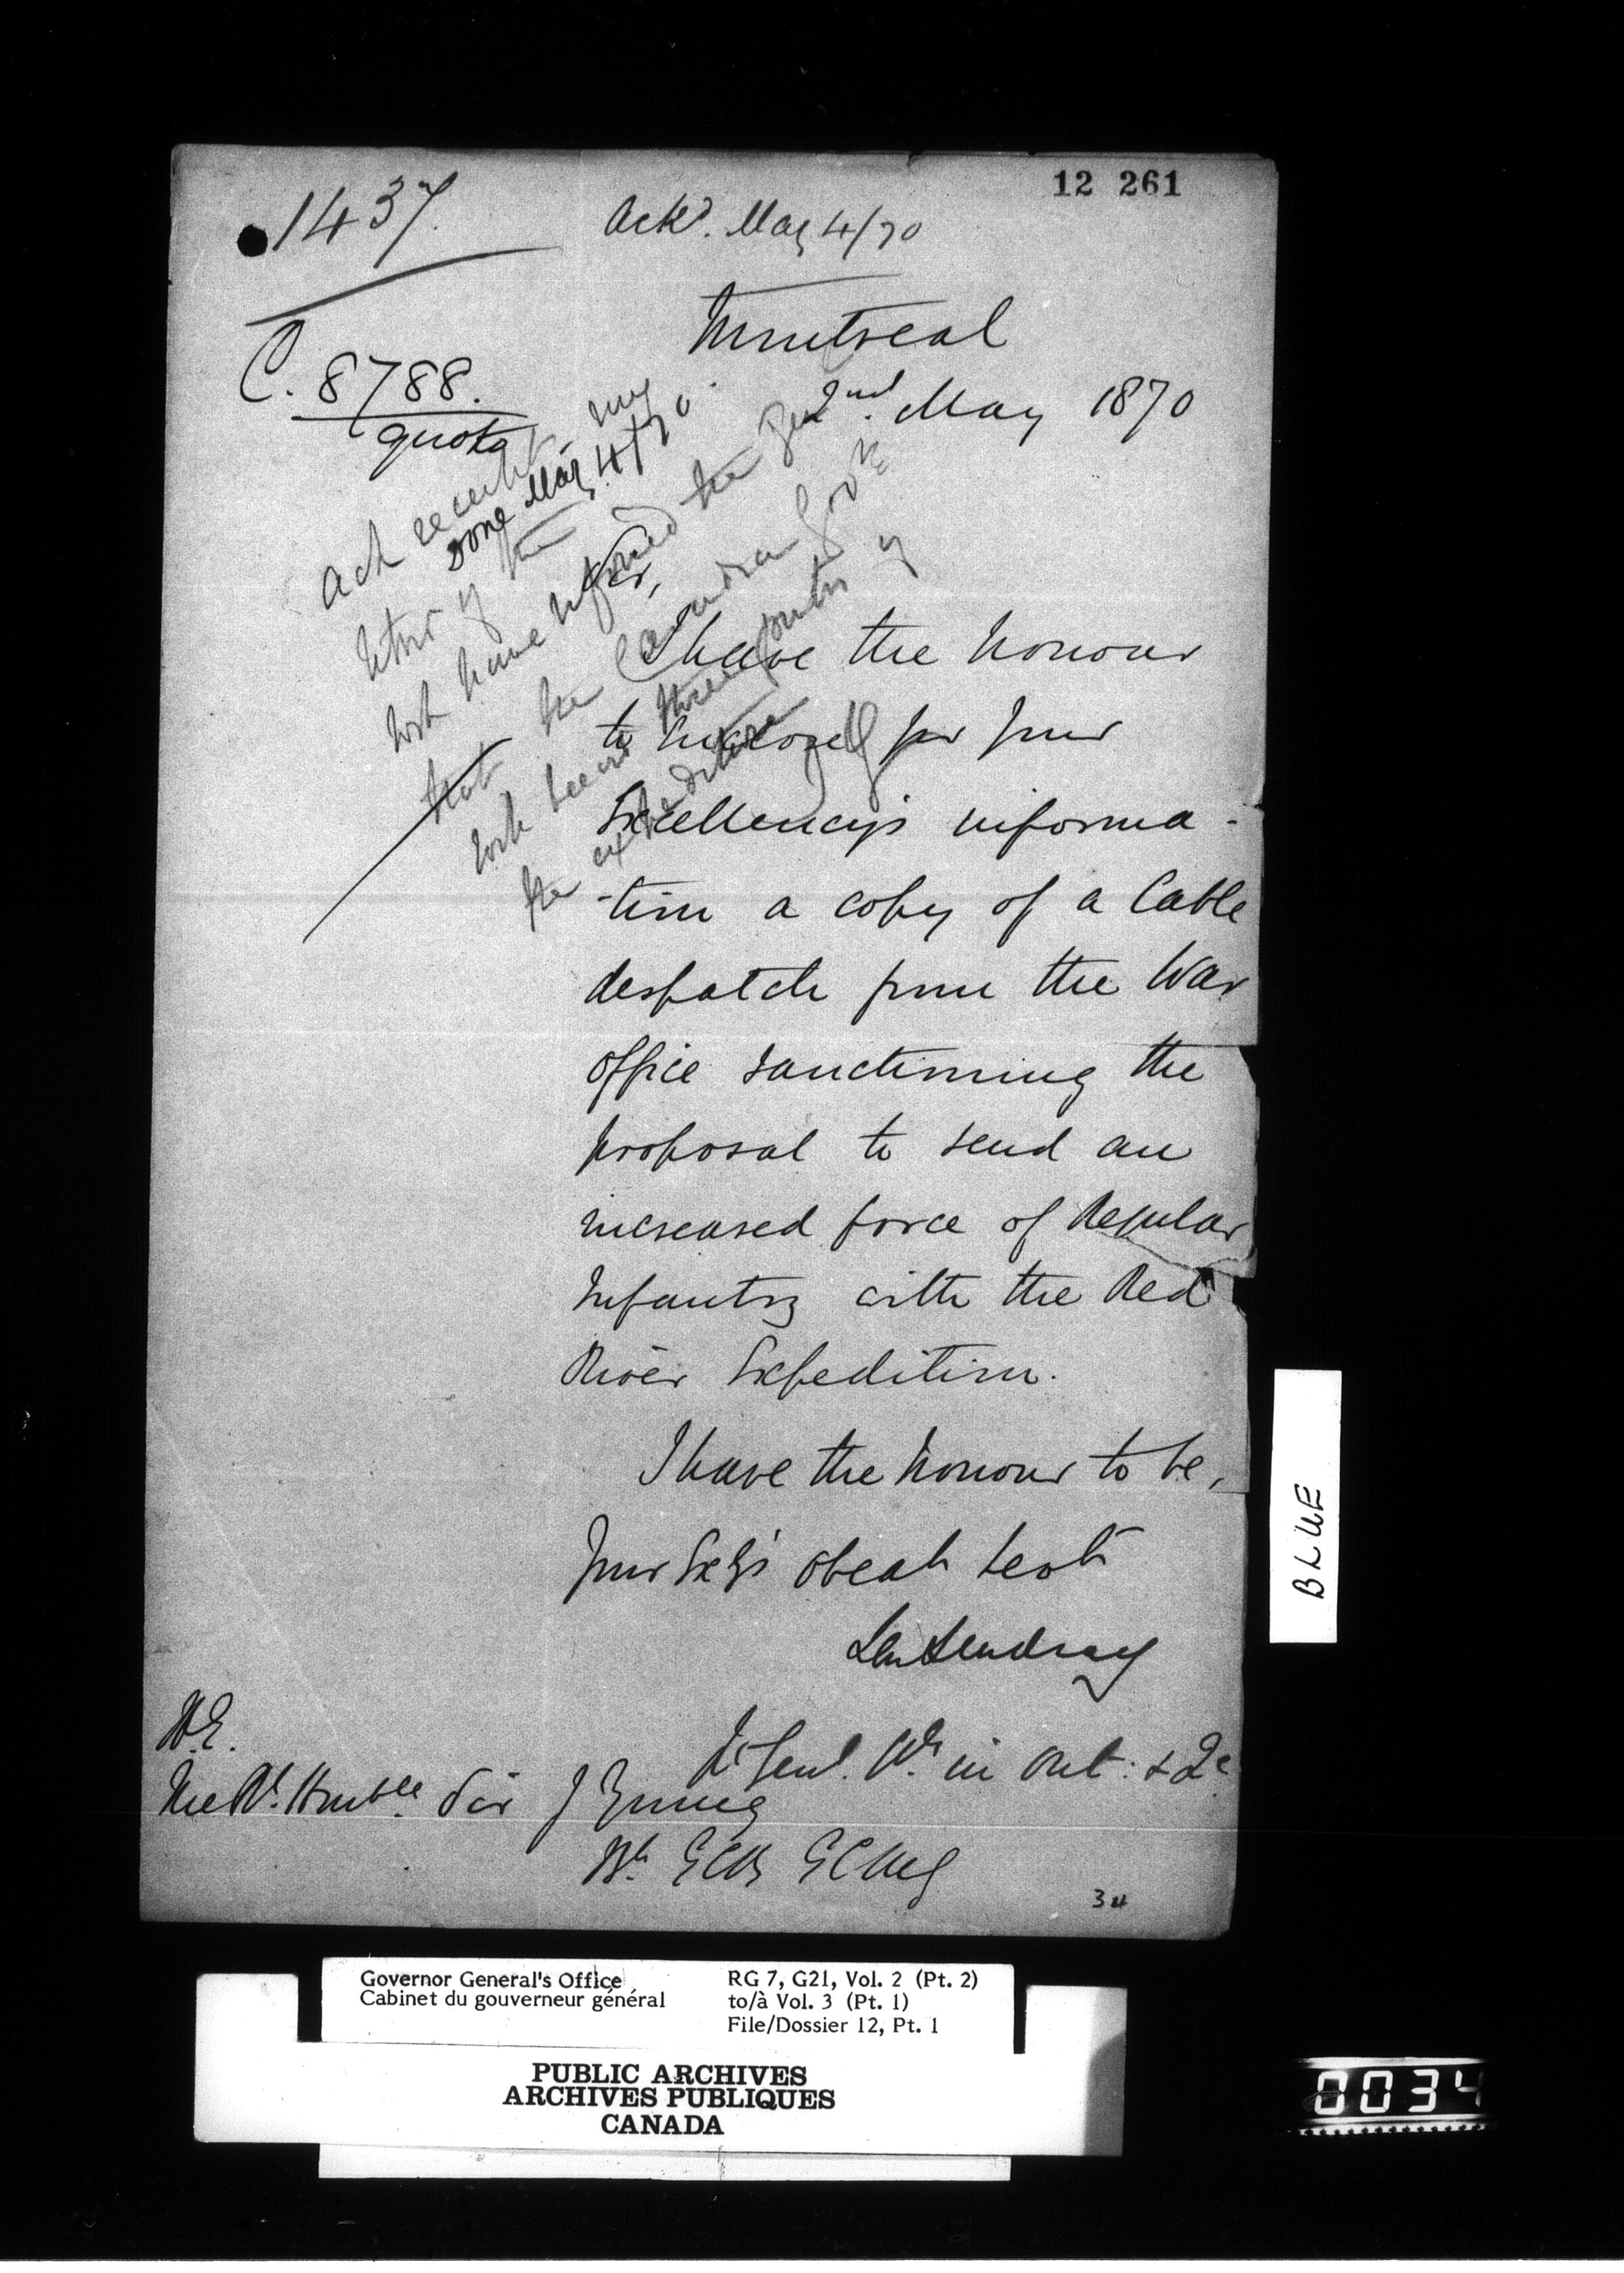 12 261
1437.
Ackd. May 4/70
Montreal
2nd. May 1870
C. 8788.
quote
Ack receipt my
Done May 4/70.
letter of the
wh have informed the
that the Canadian Govt
wh bear three fourths of
the expenditure
Sir,
I have the honour
to enclose for your
Excellency's informa-
-tion a copy of a Cable
despatch from the War
Office sanctioning the
proposal to send an
increased force of Regular
Infantry with the Red
River Expedition.
I have the honour to be,
Your Exys obedt servt
Lindsay
Lt Genl. in Ont: & Qc
H.E.
The Rt. Honble Sir J Young
Bt GCB GCMG
34
BLUE
Governor General's Office
Cabinet du gouverneur général
RG 7, G21, Vol. 2 (Pt. 2)
to/à Vol. 3 (Pt. 1)
File/Dossier 12, Pt. 1
PUBLIC ARCHIVES
ARCHIVES PUBLIQUES
CANADA
0034